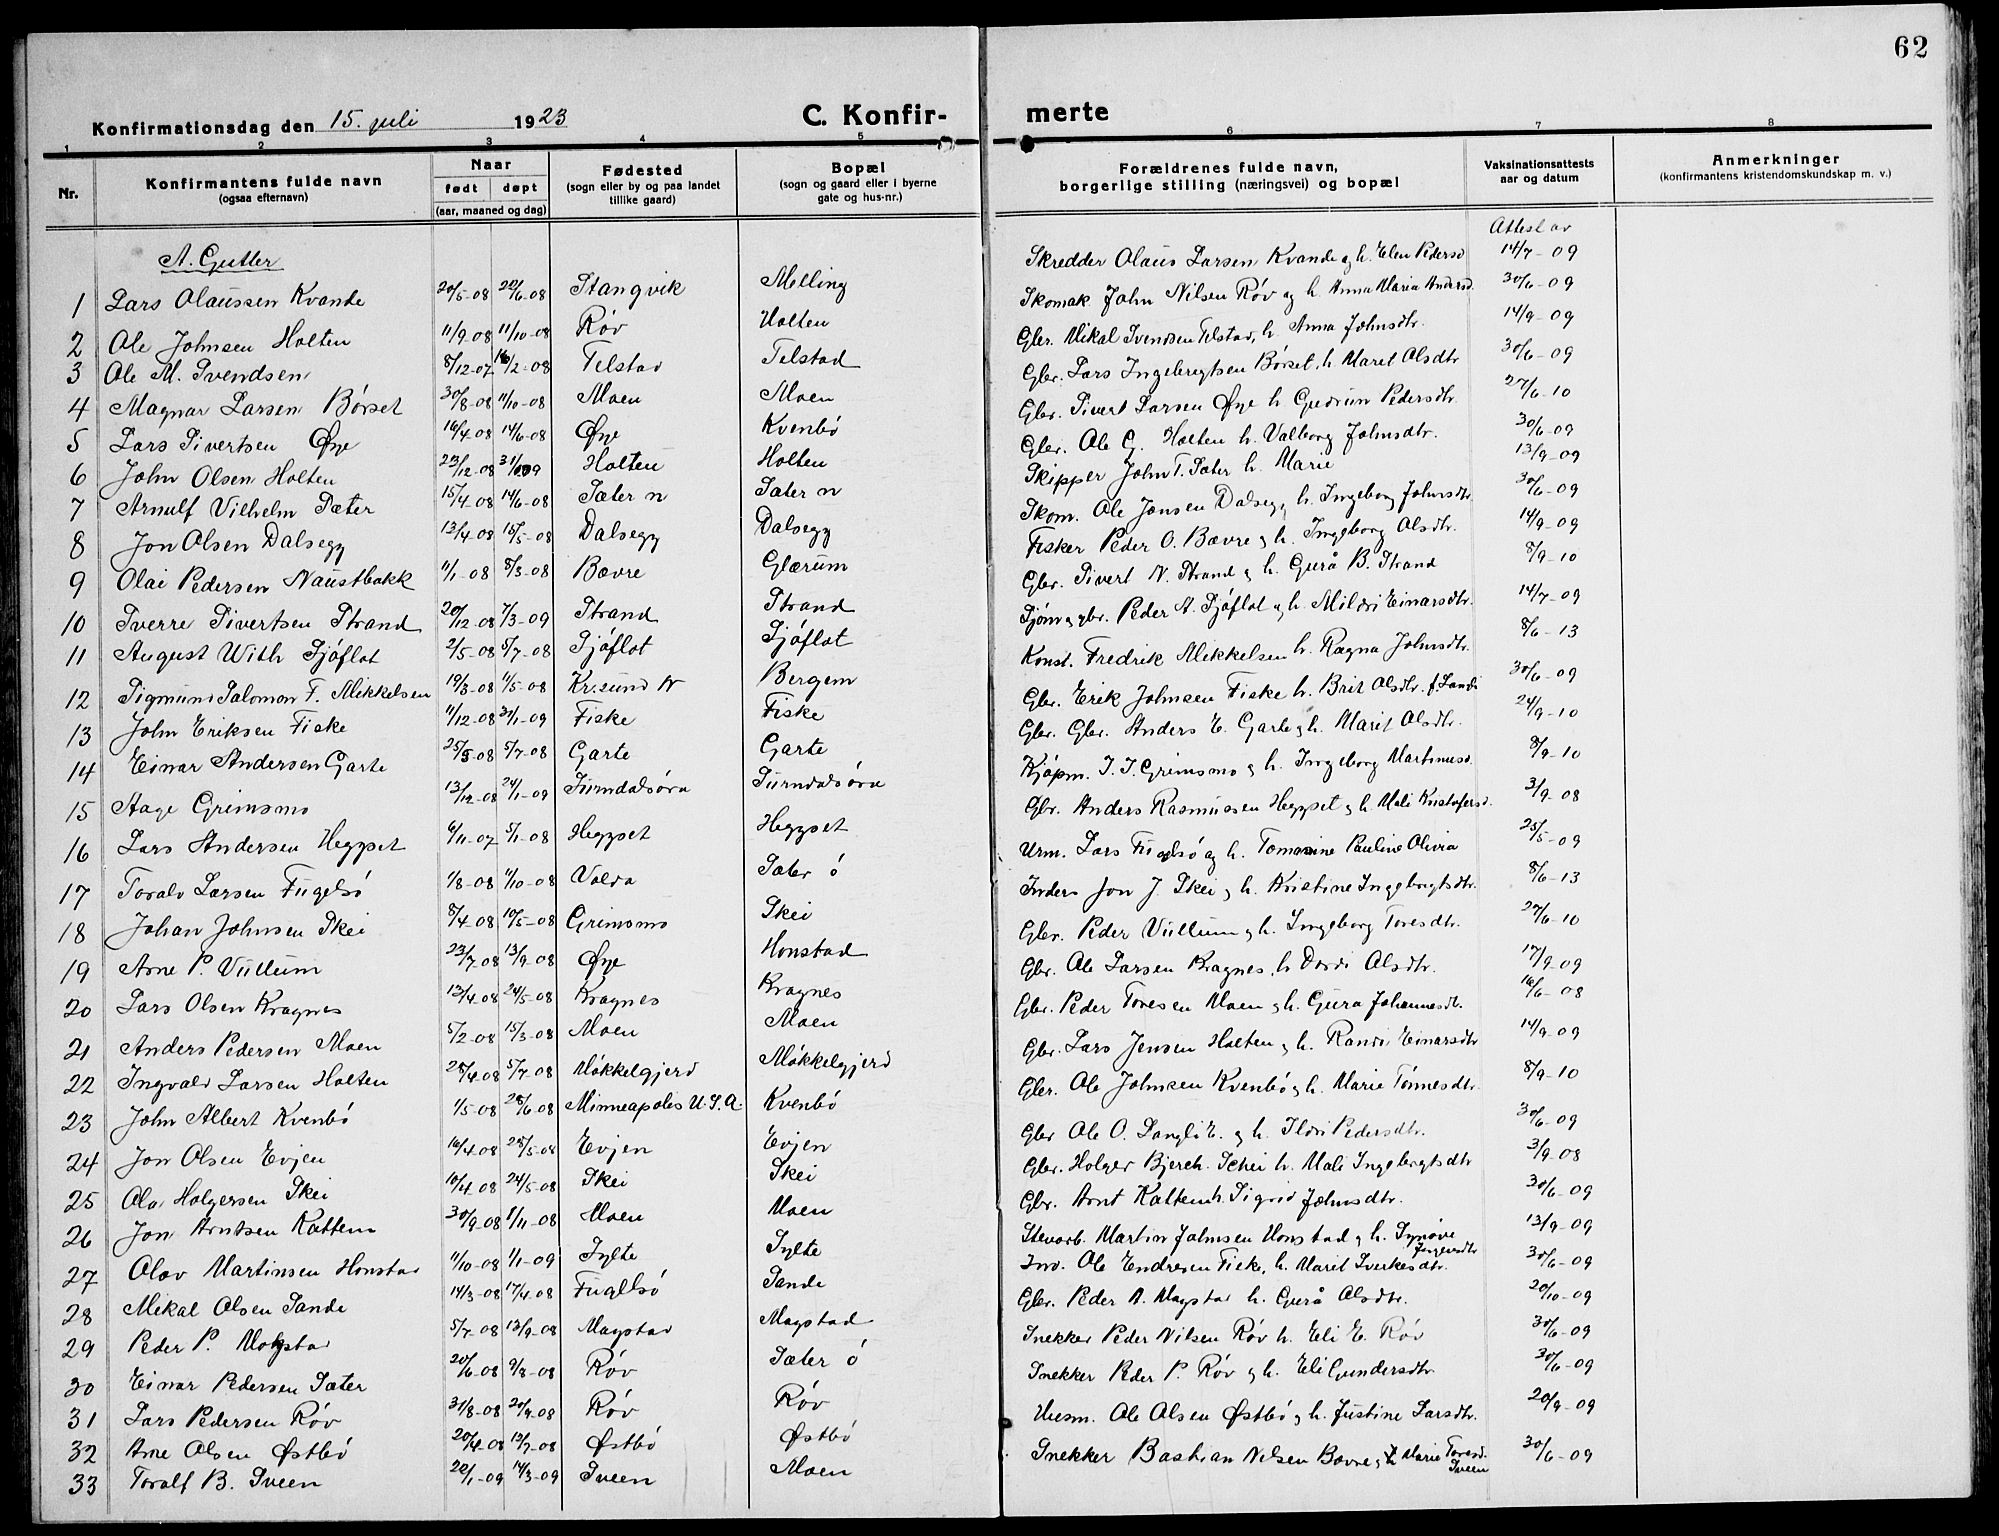 62
Konfirmationsdag den 15. juli 1923 C. Konfir- merte
1 2 3 4 5 6 7 8
Nr. Konfirmantens fulde navn (ogsaa efternavn) Naar født døpt (aar, maaned og dag) Fødested (sogn eller by og paa landet tillike gaard) Bopæl (sogn og gaard eller i byerne gate og hus-nr.) Forældrenes fulde navn, borgerlige stilling (næringsvei) og bopæl Vaksinationsattests aar og datum Anmerkninger (konfirmantens kristendomskundskap m. v.)
A. Gutter Attest av
1 Lars Olaussen Kvande 20/5-08 20/6-08 Stangvik Melling Skredder Olaus Larsen Kvande og h. Elen Pedersd 14/7-09
2 Ole Johnsen Holten 11/9-08 11/10-08 Røv Holten Skomak John Nilsen Røv og h. Anna Maria Andersd. 30/6-09
3 Ole M. Svendsen 8/12-07 16/2-08 Telstad Telstad Gbr. Mikal Svendsen Telstad, h. Anna Johnsdtr. 14/9-09
4 Magnar Larsen Børset 30/8-08 11/10-08 Moen Moen Gbr. Lars Ingebrigtsen Børset, h. Marit Olsdtr 30/6-09
5 Lars Sivertsen Øye 16/4-08 14/6-08 Øye Kvenbø Gbr. Sivert Larsen Øye h. Gudrun Pedersdtr. 27/6-10
6 John Olsen Holten 23/12-08 31/1-09 Holten Holten Gbr. Ole G. Holten h. Valborg Johnsdtr. 30/6-09
7 Arnulf Vilhelm Sæter 15/4-08 14/6-08 Sæter n Sæter n Skipper John T. Sæter h. Marie 13/9-09
8 Jon Olsen Dalsegg 13/4-08 15/5-08 Dalsegg Dalsegg Skom. Ole Jonsen Dalsegg, h. Ingeborg Johnsdtr. 30/6-09
9 Olai Pedersen Naustbakk 11/1-08 8/3-08 Bævre Glærum Fisker Peder O. Bævre og h. Ingeborg Olsdtr. 14/9-09
10 Sverre Sivertsen Strand 20/12-08 7/3-09 Strand Strand Gbr. Sivert N. Strand og h. Gurå B. Strand 8/9-10
11 August With Sjøflot 2/5-08 5/7-08 Sjøflot Sjøflot Sjøm og gbr. Peder A. Sjøflot og h. Mildri Einarsdtr. 14/7-09
12 Sigmund Salomon F. Mikkelsen 19/3-08 11/5-08 Kr.sund N Bergem Konst. Fredrik Mikkelsen h. Ragna Johnsdtr. 8/6-13
13 John Eriksen Fiske 11/12-08 31/1-09 Fiske Fiske Gbr. Erik Johnsen Fiske h. Brit Olsdtr. f. Sande 30/6-09
14 Einar Andersen Garte 25/5-08 5/7-08 Garte Garte Gbr. Gbr. Anders E. Garte og h. Marit Olsdtr. 24/9-10
15 Aage Grimsmo 13/12-08 24/1-09 Surndalsøra Surndalsøra Kjøpm. I. I. Grimsmo og h. Ingeborg Martinusd. 8/9-10
16 Lars Andersen Heggset 6/11-07 5/1-08 Heggset Heggset Gbr. Anders Rasmussen Heggset og h. Mali Kristofersd. 3/9-08
17 Toralv Larsen Fugelsø 1/8-08 11/10-08 Valda Sæter ø Urm. Lars Fugelsø og h. Tomasine Pauline Olivia 25/5-09
18 Johan Johnsen Skei 8/4-08 10/5-08 Grimsmo Skei Inders Jon J. Skei og h. Kristine Ingebrigtsdtr. 8/6-13
19 Arne P. Vullum 23/7-08 13/9-08 Øye Honstad Gbr. Peder Vullum og h. Ingeborg Toresdtr. 27/6-10
20 Lars Olsen Kragnes 13/4-08 24/5-08 Kragnes Kragnes Gbr. Ole Larsen Kragnes, h. Dordi Olsdtr. 17/9-09
21 Anders Pedersen Moen 5/2-08 15/3-08 Moen Moen Gbr. Peder Toresen Moen og h. Gura Johannesdt. 16/6-08
22 Ingvald Larsen Holten 28/4-08 5/7-08 Møkkelgjerd Møkkelgjerd Gbr. Lars Jensen Holten og h. Randi Einarsdtr 14/9-09
23 John Albert Kvenbø 1/5-08 28/6-08 Minneapolis U.S.A. Kvenbø Gbr. Ole Johnsen Kvenbø og h. Marie Tønnesdtr. 8/9-10
24 Jon Olsen Evjen 16/4-08 28/5-08 Evjen Evjen Gbr Ole O. Langli E. og h. Ildri Pedersdtr. 30/6-09
25 Ola Holgersen Skei 10/4-08 24/5-08 Skei Skei Gbr. Holger Bjerch. Schei h. Mali Ingebrigtsdtr 3/9-08
26 Jon Arntsen Kattem 30/9-08 1/11-08 Moen Moen Gbr. Arnt Kattem h. Sigrid Johnsdtr. 30/6-09
27 Olav Martinsen Honstad 11/10-08 1/1-09 Sylte Sylte Stevarb. Martin Johnsen Honstad og h. Synøve Ingersdtr 13/9-09
28 Mikal Olsen Sande 14/3-08 17/4-08 Fuglsø Sande Inv. Ole Endresen Fiske, h. Marit Sverkesdtr. 30/6-09
29 Peder P. Mogstad 5/7-08 13/9-08 Mogstad Mogstad Gbr. Peder N. Mogstad h. Gurå Olsdtr. 20/10-09
30 Einar Pedersen Sæter 20/6-08 9/8-08 Røv Sæter ø Snekker Peder Nilsen Røv h. Eli E. Røv 30/6-09
31 Lars Pedersen Røv 31/8-08 20/9-08 Røv Røv Snekker Peder P. Røv og h. Eli Gundersdtr. 30/6-09
32 Arne Olsen Østbø 20/4-08 13/7-08 Østbø Østbø Husm. Ole Olsen Østbø og h. Justine Larsdtr. 20/9-09
33 Toralf B. Sveen 20/1-09 14/3-09 Sveen Moen Snekker Bastian Nilsen Bævre og h Marie Toresd. Sveen 30/6-09